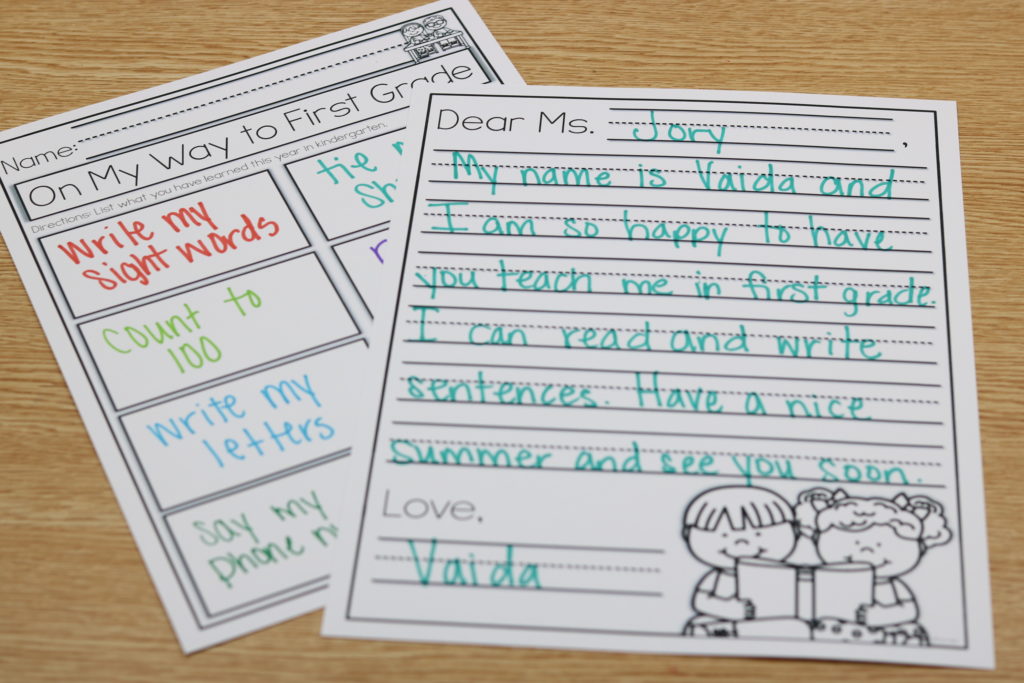 Name:
On My Way to First Grade
Directions: List what you have learned this year in kindergarten.
write my
sight words
tie
count to
100
write my
letters
say my
phone
Dear Ms. Jory,
My name is Vaida and
I am so happy to have
you teach me in first grade.
I can read and write
sentences. Have a nice
summer and see you soon.
Love,
Vaida